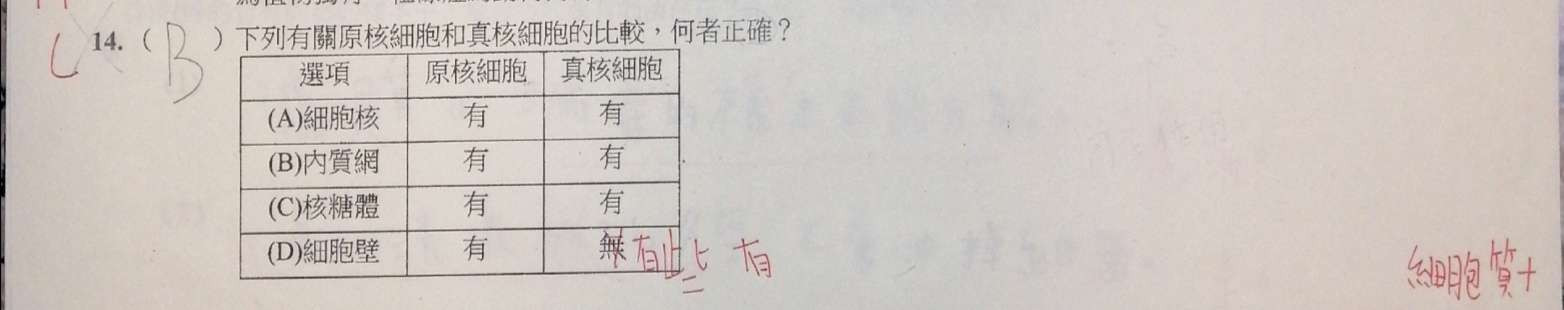 C 14.（ B ）下列有關原核細胞和真核細胞的比較，何者正確？
選項 原核細胞 真核細胞
(A)細胞核 有 有
(B)內質網 有 有
(C)核糖體 有 有
(D)細胞壁 有 無 有些有
細胞質+